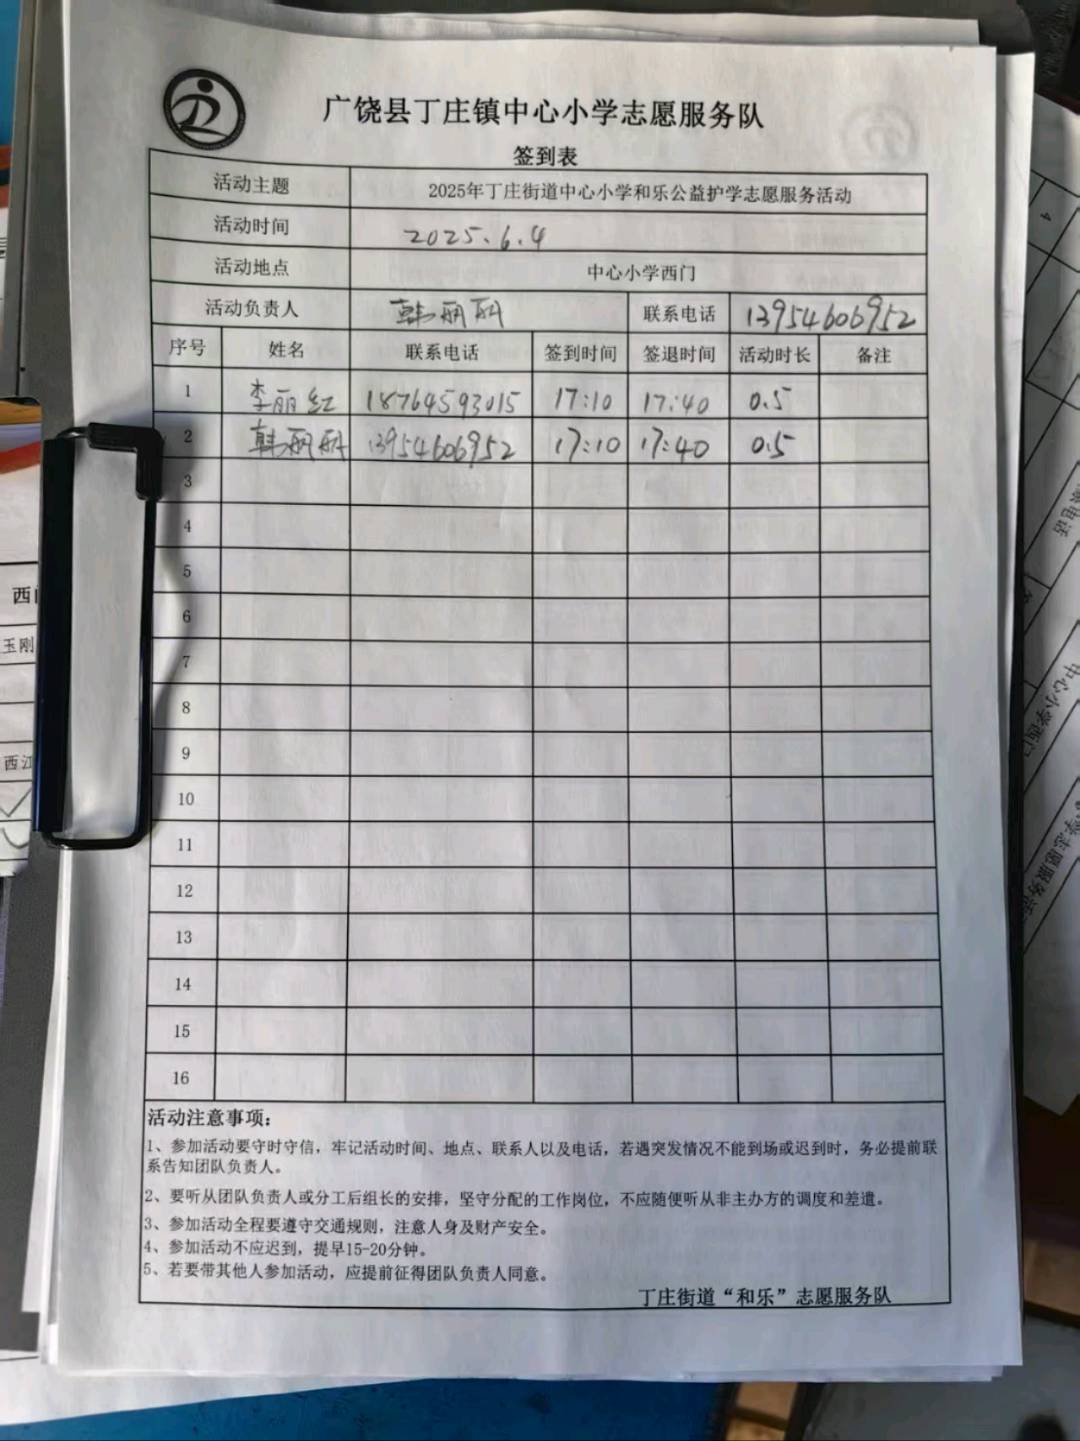 广饶县丁庄镇中心小学志愿服务队
签到表
活动主题 2025年丁庄街道中心小学和乐公益护学志愿服务活动
活动时间 2025.6.4
活动地点 中心小学西门
活动负责人 韩丽丽 联系电话 13954606952
序号 姓名 联系电话 签到时间 签退时间 活动时长 备注
1 李丽红 18764593015 17:10 17:40 0.5
2 韩丽丽 13954606952 17:10 17:40 0.5
3
4
5
6
7
8
9
10
11
12
13
14
15
16
活动注意事项：
1、参加活动要守时守信，牢记活动时间、地点、联系人以及电话，若遇突发情况不能到场或迟到时，务必提前联
系告知团队负责人。
2、要听从团队负责人或分工后组长的安排，坚守分配的工作岗位，不应随便听从非主办方的调度和差遣。
3、参加活动全程要遵守交通规则，注意人身及财产安全。
4、参加活动不应迟到，提早15-20分钟。
5、若要带其他人参加活动，应提前征得团队负责人同意。
丁庄街道“和乐”志愿服务队
玉刚
西江
4
电话
中心小学西门
学志愿服务活